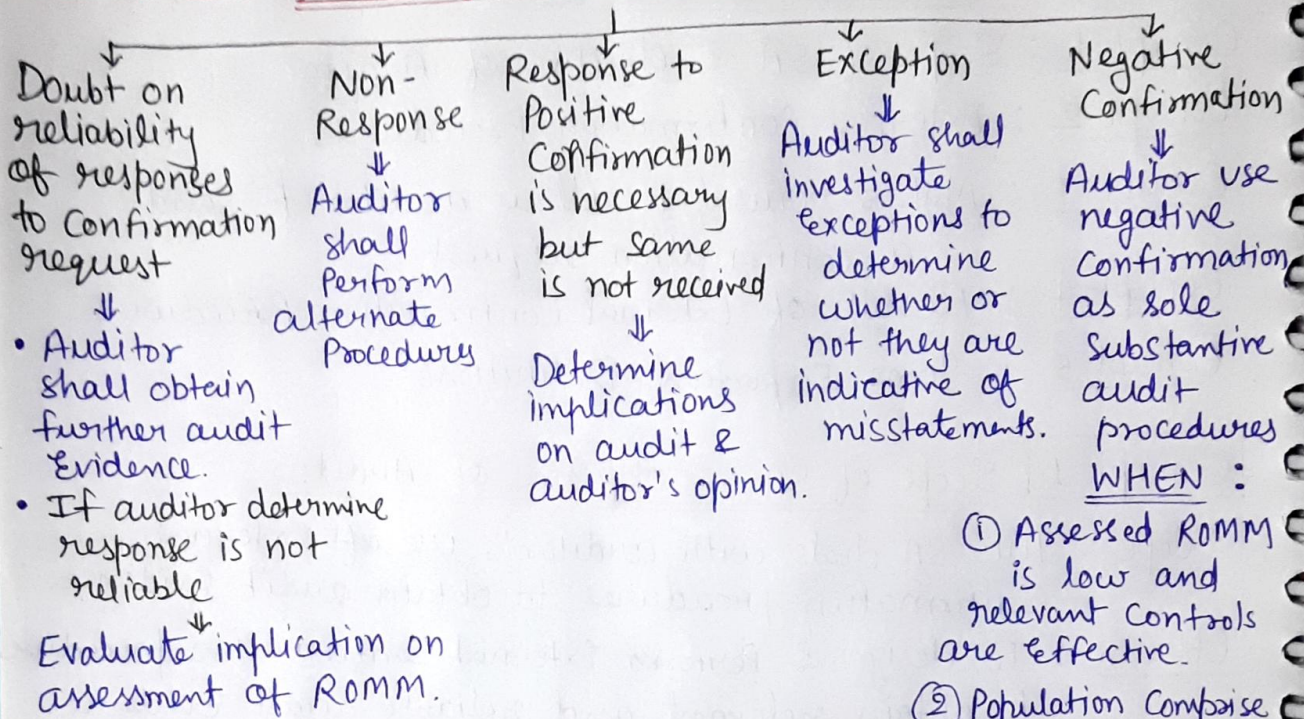 Doubt on
reliability
of responses
to Confirmation
request
• Auditor
shall obtain
further audit
Evidence.
• If auditor determine
response is not
reliable
Evaluate implication on
assessment of ROMM.
Non-
Response
Auditor
shall
Perform
alternate
Procedures
Response to
Positive
Confirmation
is necessary
but same
is not received
Determine
implications
on audit &
auditor's opinion.
Exception
Auditor shall
investigate
exceptions to
determine
whether or
not they are
indicative of
misstatements.
Negative
Confirmation
Auditor use
negative
Confirmation
as sole
Substantive
audit
procedures
WHEN :
① Assessed ROMM
is low and
relevant Controls
are effective.
② Population Comprise